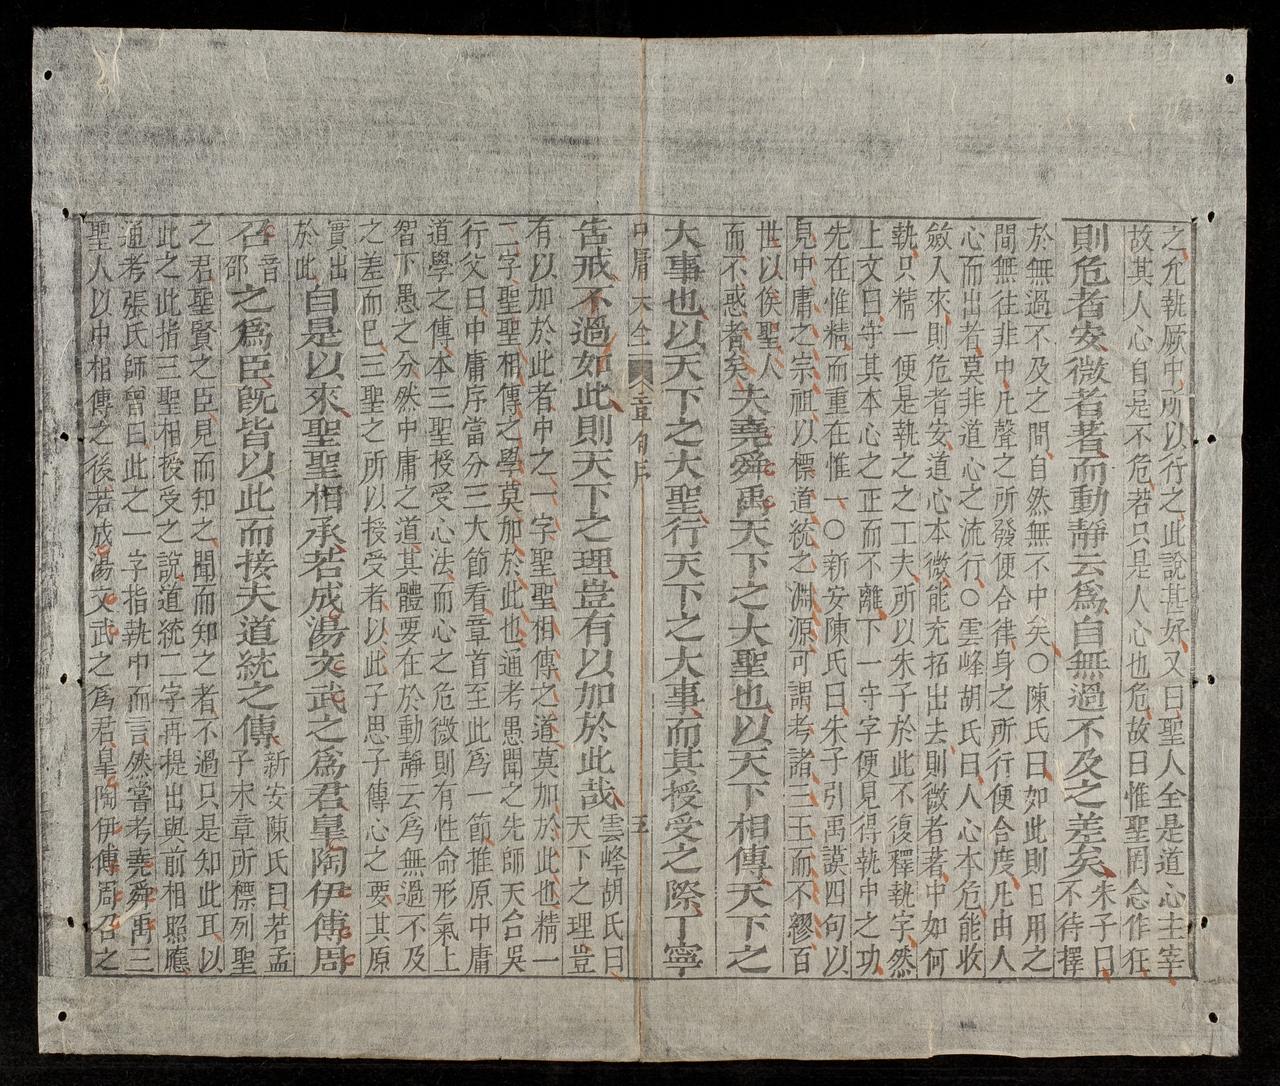 之允執厥中所以行之此說甚好又曰聖人全是道心主宰
故其人心自是不危若只是人心也危故曰惟聖罔念作狂
則危者安微者著而動靜云爲自無過不及之差矣
朱子曰
不待擇
於無過不及之間自然無不中矣○陳氏曰如此則日用之
間無往非中凡聲之所發便合律身之所行便合度凡由人
心而出者莫非道心之流行○雲峰胡氏曰人心本危能收
斂入來則危者安道心本微能充拓出去則微者著中如何
執只精一便是執之之工夫所以朱子於此不復釋執字然
上文曰守其本心之正而不離下一守字便見得執中之功
先在惟精而重在惟一○新安陳氏曰朱子引禹謨四句以
見中庸之宗祖以標道統之淵源可謂考諸三王而不繆百
世以俟聖人
而不惑者矣
夫堯舜禹天下之大聖也以天下相傳天下之
大事也以天下之大聖行天下之大事而其授受之際丁寧
中庸大全 章句序 五
告戒不過如此則天下之理豈有以加於此哉
雲峰胡氏曰
天下之理豈
有以加於此者中之一字聖聖相傳之道莫加於此也精一
二字聖聖相傳之學莫加於此也通考愚聞之先師天台吳
行父曰中庸序當分三大節看章首至此爲一節推原中庸
道學之傳本三聖授受心法而心之危微則有性命形氣上
智下愚之分然中庸之道其體要在於動靜云爲無過不及
之差而已三聖之所以授受者以此子思子傳心之要其原
實出
於此
自是以來聖聖相承若成湯文武之爲君皐陶伊傅周
召
音
邵
之爲臣旣皆以此而接夫道統之傳
新安陳氏曰若孟
子末章所標列聖
之君聖賢之臣見而知之聞而知之者不過只是知此耳以
此之此指三聖相授受之說道統二字再提出與前相照應
通考張氏師曾曰此之一字指執中而言然嘗考堯舜禹三
聖人以中相傳之後若成湯文武之爲君皐陶伊傅周召之